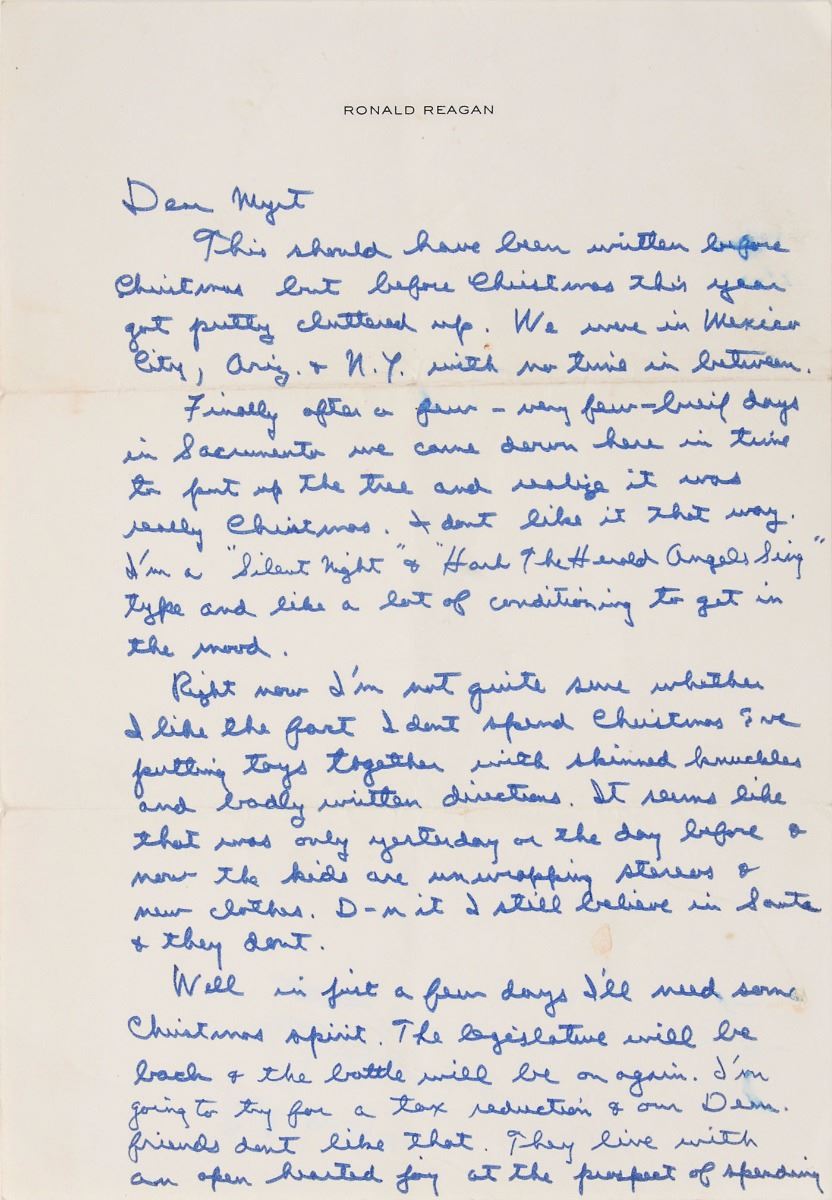 RONALD REAGAN
Dear Myrt
This should have been written before
Christmas but before Christmas this year
got pretty cluttered up. We were in Mexico
City, Ariz. & N.Y. with no time in between.
Finally after a few - very few-breif days
in Sacramento we came down here in time
to put up the tree and realize it was
really Christmas. I dont like it that way.
I'm a "Silent Night" & "Hark The Herald Angels Sing"
type and like a lot of conditioning to get in
the mood.
Right now I'm not quite sure whether
I like the fact I dont spend Christmas Eve
putting toys together with skinned knuckles
and badly written directions. It seems like
that was only yesterday or the day before &
now the kids are unwrapping stereos &
new clothes. D-n it I still believe in Santa
& they dont.
Well in just a few days I'll need some
Christmas spirit. The legislature will be
back & the battle will be on again. I'm
going to try for a tax reduction & our Dem.
friends dont like that. They live with
an open hearted joy at the prospect of spending